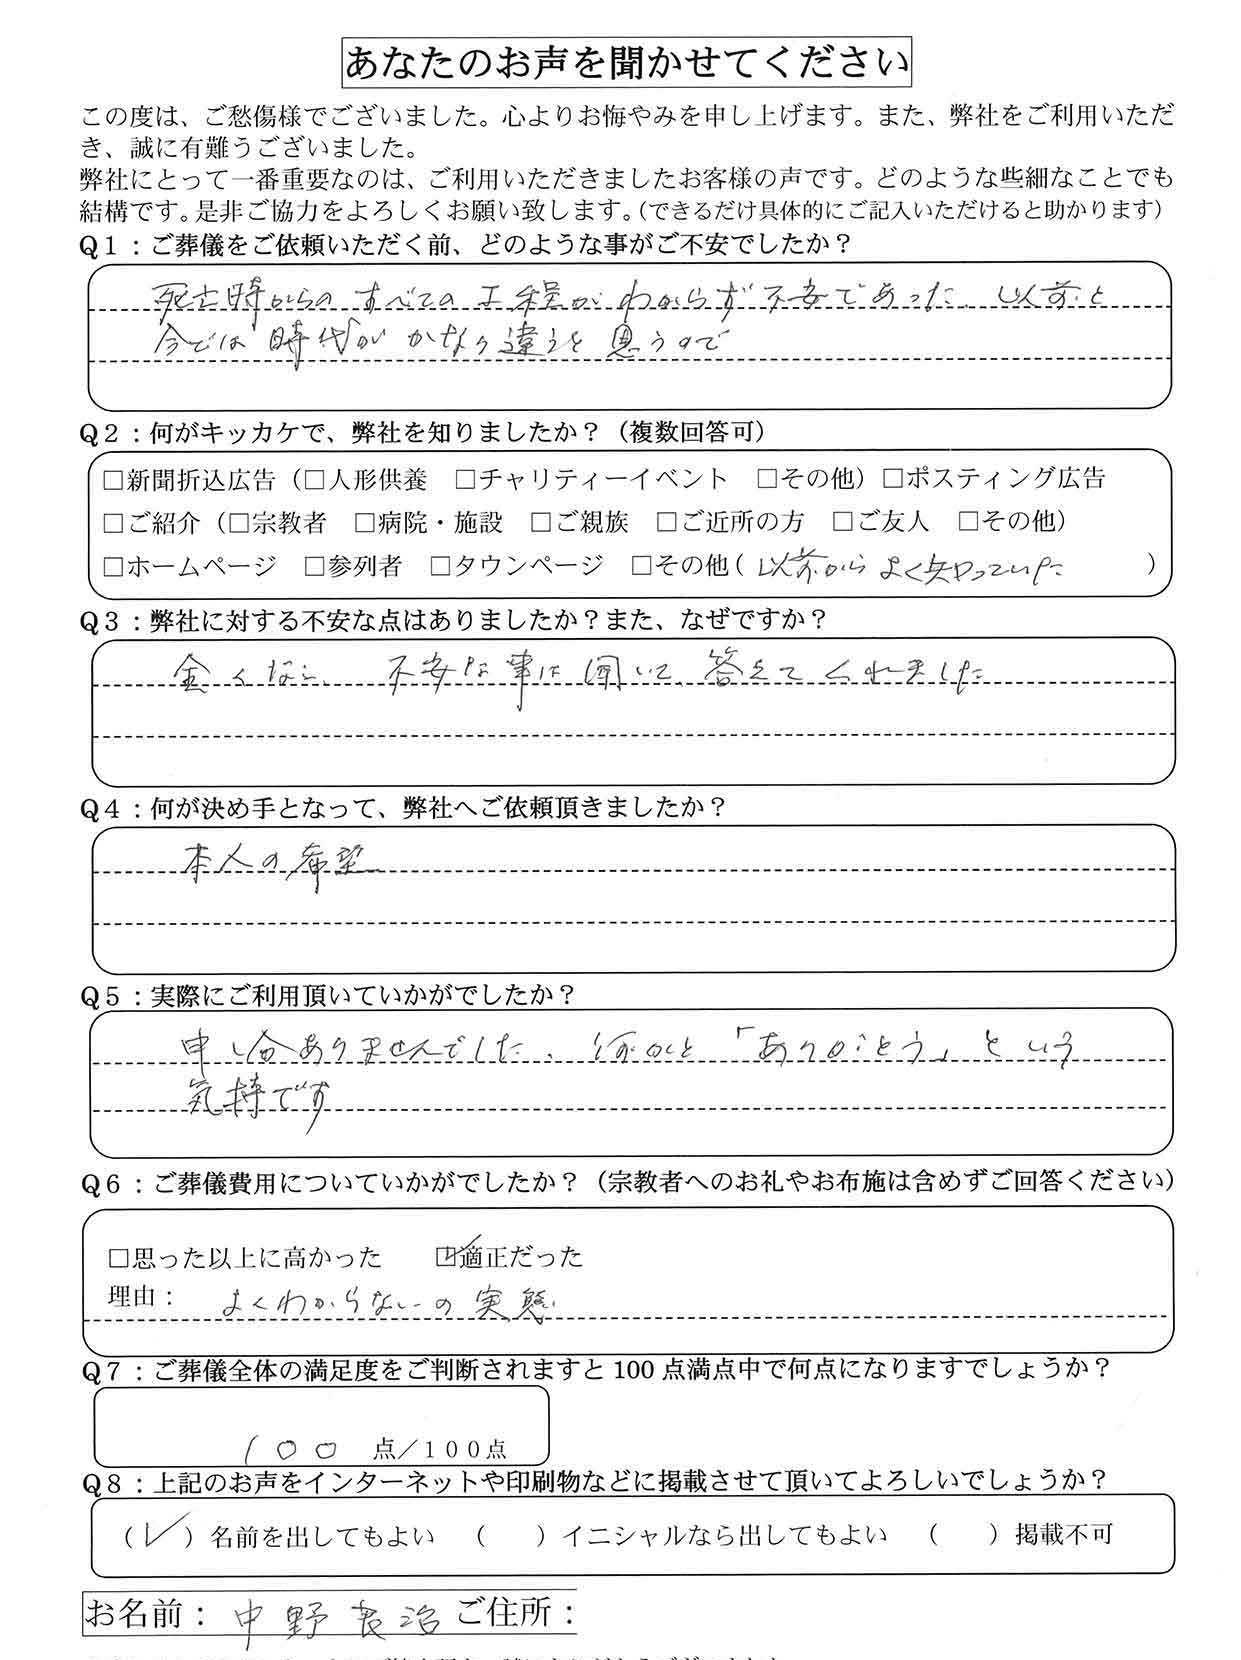 あなたのお声を聞かせてください
この度は、ご愁傷様でございました。心よりお悔やみを申し上げます。また、弊社をご利用いただ
き、誠に有難うございました。
弊社にとって一番重要なのは、ご利用いただきましたお客様の声です。どのような些細なことでも
結構です。是非ご協力をよろしくお願い致します。（できるだけ具体的にご記入いただけると助かります）
Ｑ１：ご葬儀をご依頼いただく前、どのような事がご不安でしたか？
死亡時からの すべての工程が わからず 不安であった、以前と
今では 時代が かなり違うと思うので
Ｑ２：何がキッカケで、弊社を知りましたか？（複数回答可）
□新聞折込広告（□人形供養　□チャリティーイベント　□その他）□ポスティング広告
□ご紹介（□宗教者　□病院・施設　□ご親族　□ご近所の方　□ご友人　□その他）
□ホームページ　□参列者　□タウンページ　□その他（ 以前から よく知っていた ）
Ｑ３：弊社に対する不安な点はありましたか？また、なぜですか？
全くない、 不安な事は 聞いて、答えて くれました
Ｑ４：何が決め手となって、弊社へご依頼頂きましたか？
本人の希望
Ｑ５：実際にご利用頂いていかがでしたか？
申し分ありませんでした、何かと「ありがとう」という
気持です
Ｑ６：ご葬儀費用についていかがでしたか？（宗教者へのお礼やお布施は含めずご回答ください）
□思った以上に高かった　☑適正だった
理由： よくわからないの 実態
Ｑ７：ご葬儀全体の満足度をご判断されますと 100 点満点中で何点になりますでしょうか？
100 点／１００点
Ｑ８：上記のお声をインターネットや印刷物などに掲載させて頂いてよろしいでしょうか？
（✓）名前を出してもよい　（　）イニシャルなら出してもよい　（　）掲載不可
お名前： 中野良治 ご住所：